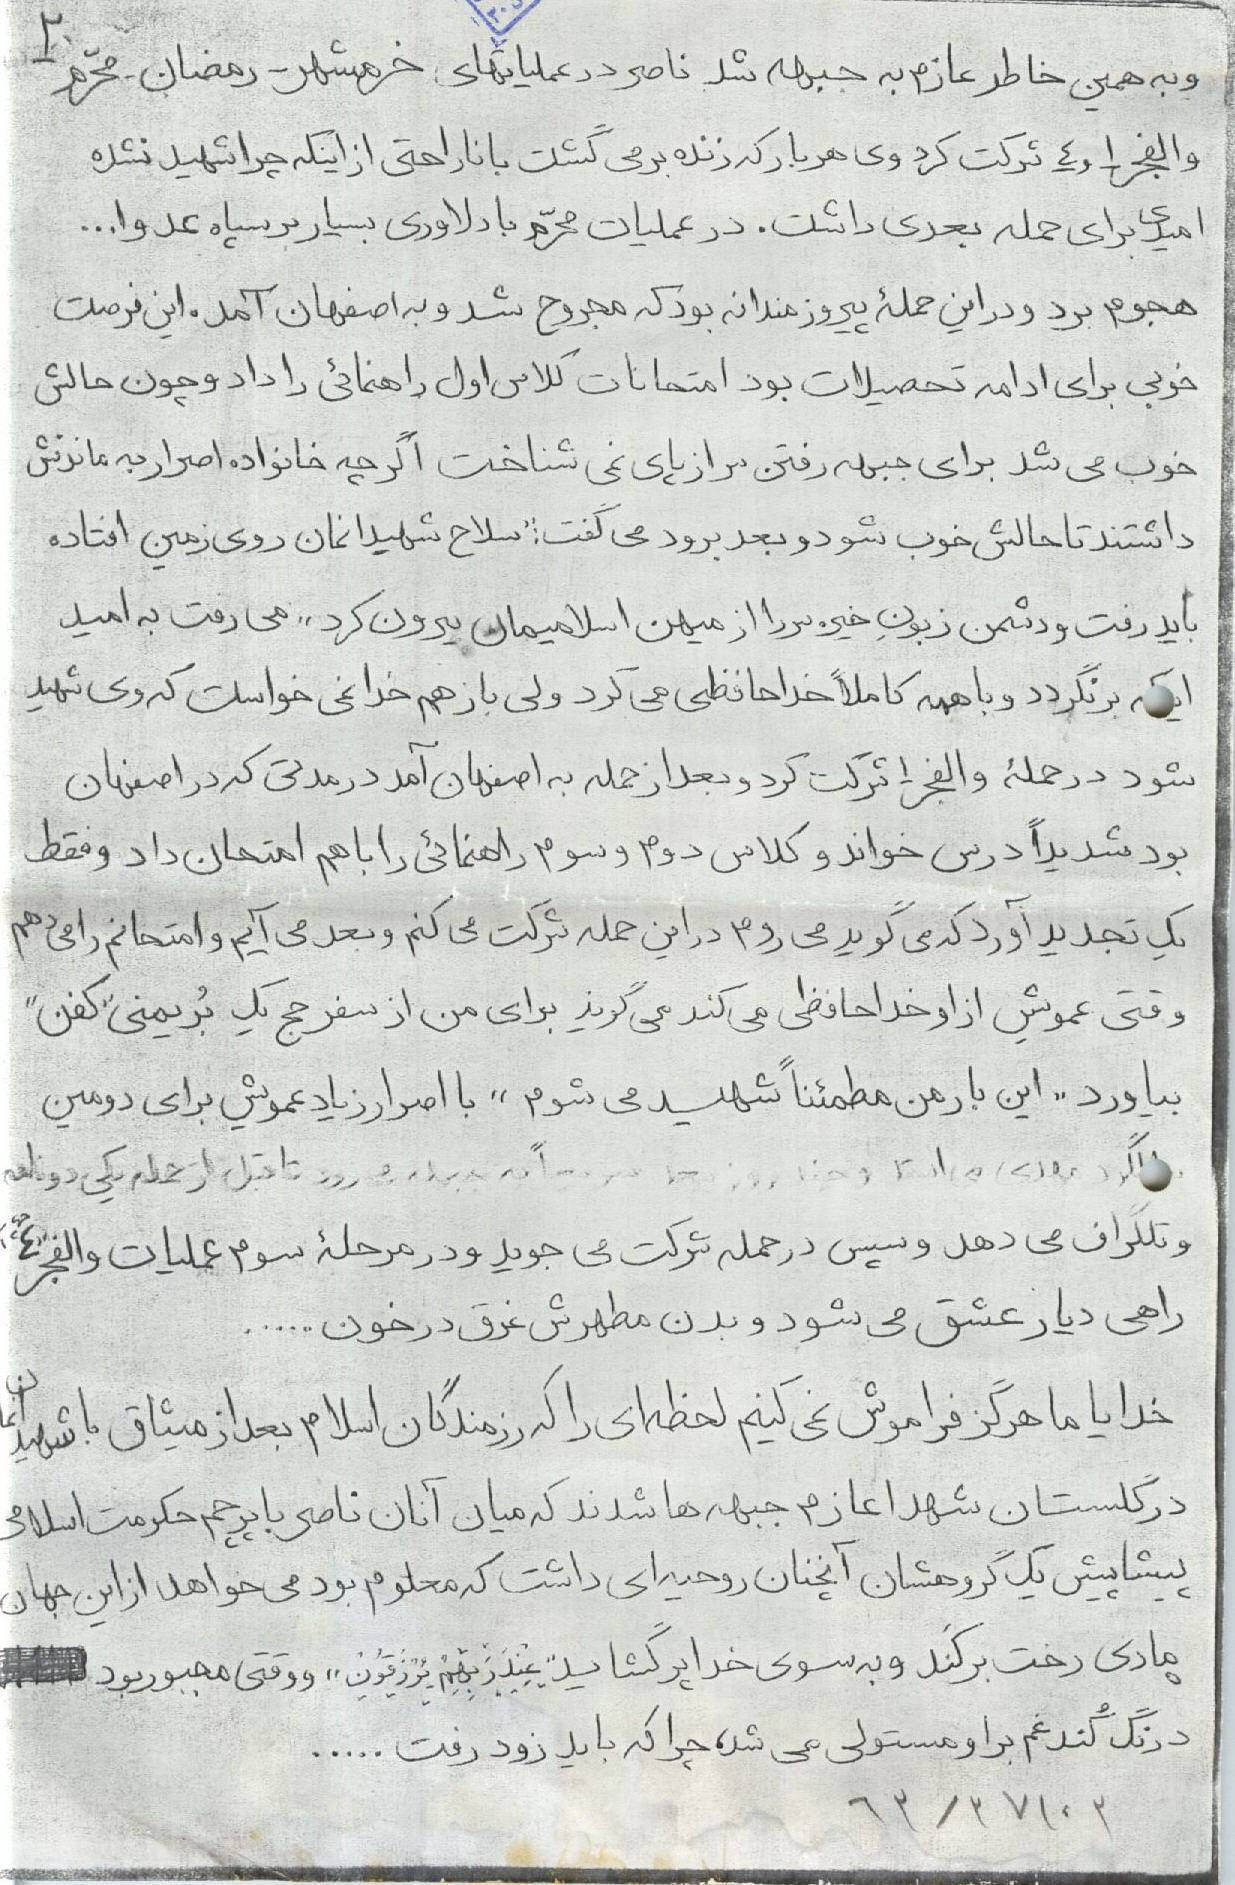 ۲
وبه همین خاطر عازم به جبهه شد ناصر در عملیاتهای خرمشهر - رمضان - محرّم
والفجر ۱ و ٤ شرکت کرد وی هر بار که زنده برمی گشت با ناراحتی از اینکه چرا شهید نشده
امیدی برای حمله بعدی داشت. در عملیات محرّم با دلاوری بسیار بر سپاه عدو ا...
هجوم برد و در این حملهٔ پیروزمندانه بود که مجروح شد و به اصفهان آمد. این فرصت
خوبی برای ادامه تحصیلات بود امتحانات کلاس اول راهنمائی را داد و چون حالش
خوب می شد برای جبهه رفتن سر از پای نمی شناخت اگر چه خانواده اصرار به ماندنش
داشتند تا حالش خوب شود و بعد برود می گفت: "سلاح شهیدانمان روی زمین افتاده
باید رفت و دشمن زبونِ خیره سر را از میهن اسلامیمان بیرون کرد" می رفت به امید
اینکه برنگردد و با همه کاملاً خداحافظی می کرد ولی باز هم خدا نمی خواست که وی شهید
شود در حملهٔ والفجر ۱ شرکت کرد و بعد از حمله به اصفهان آمد در مدتی که در اصفهان
بود شدیداً درس خواند و کلاس دوم و سوم راهنمائی را با هم امتحان داد و فقط
یک تجدید آورد که می گوید می روم در این حمله شرکت می کنم و بعد می آیم و امتحانم را می دهم
وقتی عمویش از او خداحافظی می کند می گوید برای من از سفر حج یک بُر یمنی "کفن"
بیاورد "این بار من مطمئناً شهید می شوم" با اصرار زیاد عمویش برای دومین
و چند روز بعد به جبهه می رود تا قبل از حمله یکی دو نامه
و تلگراف می دهد و سپس در حمله شرکت می جوید و در مرحلهٔ سوم عملیات والفجر ٤
راهی دیار عشق می شود و بدن مطهرش غرق در خون .....
خدایا ما هرگز فراموش نمی کنیم لحظه ای را که رزمندگان اسلام بعد از میثاق با شهیدانمان
در گلستان شهدا عازم جبهه ها شدند که میان آنان ناصر با پرچم حکومت اسلامی
پیشاپیش یک گروهشان آنچنان روحیه ای داشت که معلوم بود می خواهد از این جهان
مادی رخت برکَند و به سوی خدا پر گشاید "عِنْدَ رَبِّهِمْ یُرْزَقُونَ" و وقتی مجبور بود
درنگ کُند غم بر او مستولی می شد، چرا که باید زود رفت .....